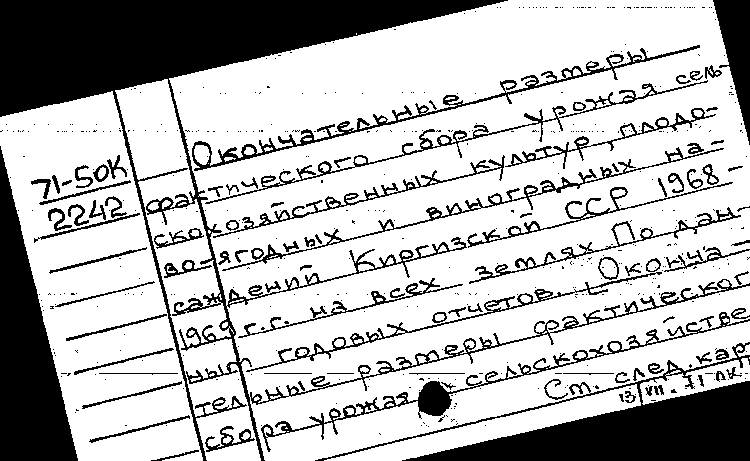 71-50К
2242
Окончательные размеры
фактического сбора урожая сель-
скохозяйственных культур, плодо-
во-ягодных и виноградных на-
саждений Киргизской ССР 1968-
1969 г.г. на всех землях По дан-
ным годовых отчетов. Оконча-
тельные размеры фактическог
сбора урожая сельскохозяйстве
Ст. след. карт
13 VII. 71